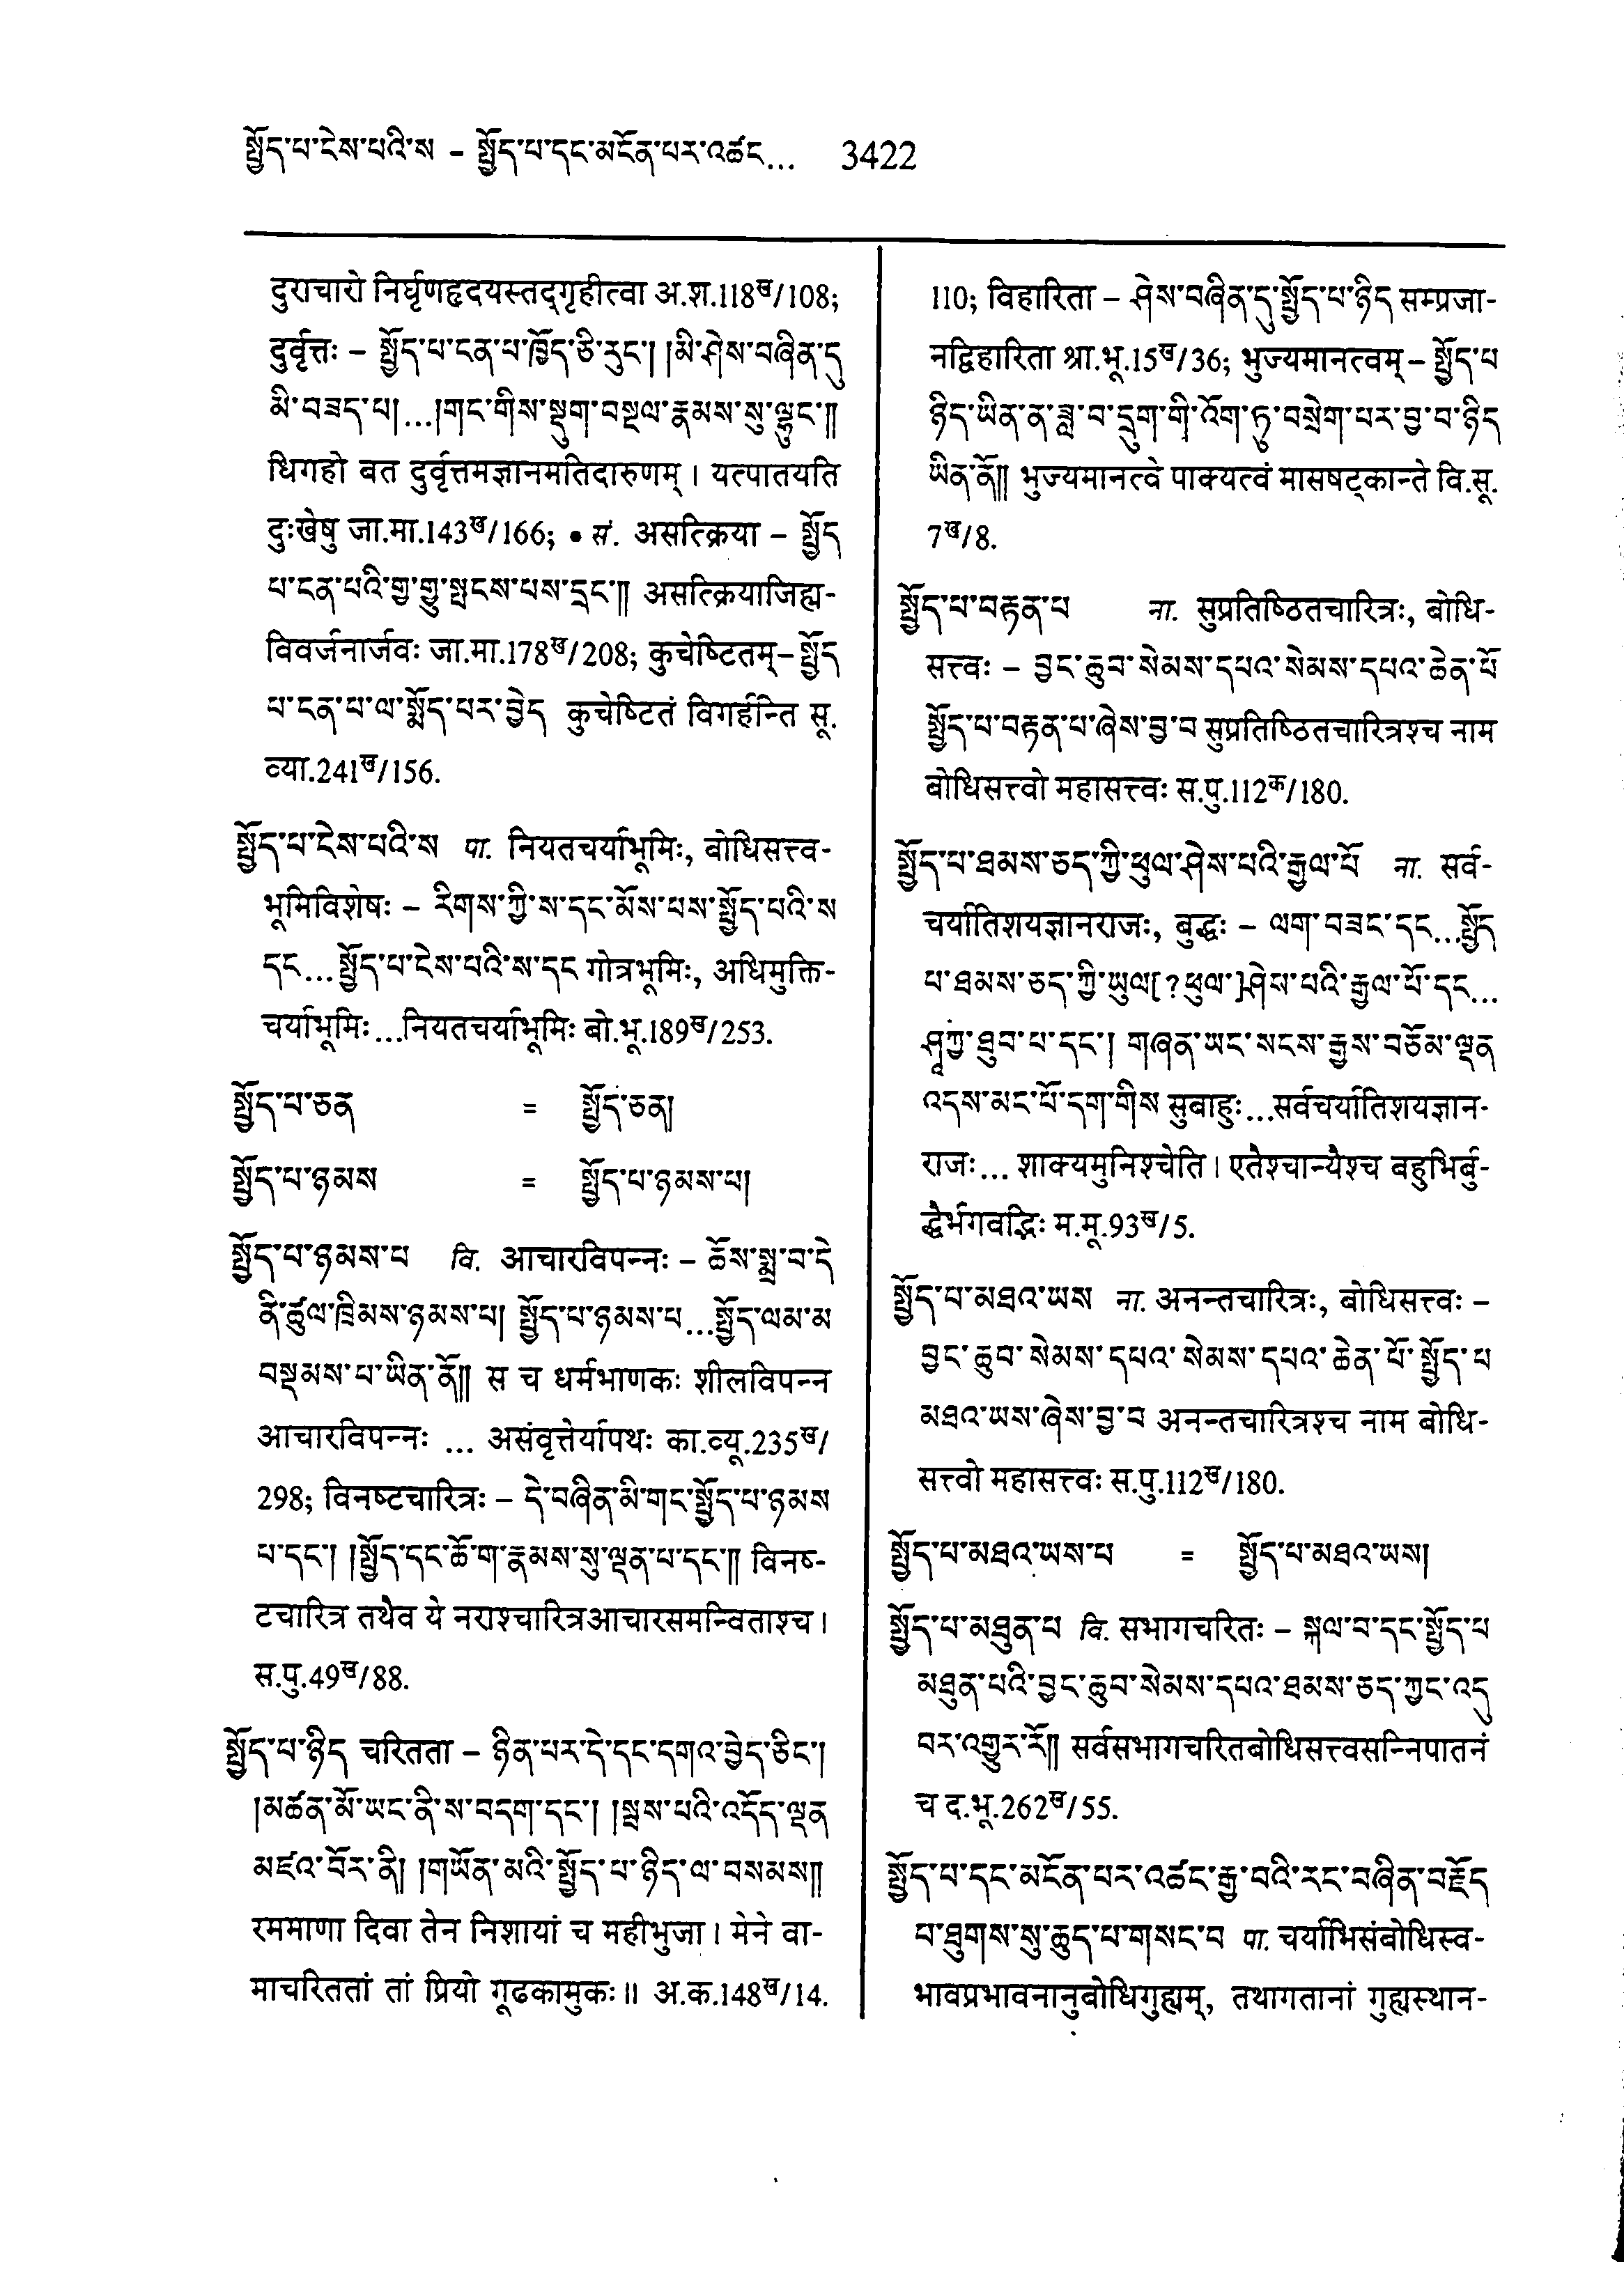 སྤྱོད་པ་ངེས་པའི་ས – སྤྱོད་པ་དང་མངོན་པར་འཚང... 3422
दुराचारो निर्घृणहृदयस्तद्गृहीत्वा अ.श.118ख/108;
दुर्वृत्तः – སྤྱོད་པ་ངན་པ་ཁྱོད་ཅི་རུང་། །མི་ཤེས་བཞིན་དུ
མི་བཟད་པ།...།གང་གིས་སྡུག་བསྔལ་རྣམས་སུ་ལྟུང་༎
धिगहो बत दुर्वृत्तमज्ञानमतिदारुणम् । यत्पातयति
दुःखेषु जा.मा.143ख/166; • सं. असत्क्रिया – སྤྱོད
པ་ངན་པའི་གྱ་གྱུ་སྤངས་པས་དྲང་༎ असत्क्रियाजिह्म-
विवर्जनार्जवः जा.मा.178ख/208; कुचेष्टितम्– སྤྱོད
པ་ངན་པ་ལ་སྨོད་པར་བྱེད कुचेष्टितं विगर्हन्ति सू.
व्या.241ख/156.
སྤྱོད་པ་ངེས་པའི་ས पा. नियतचर्याभूमिः, बोधिसत्त्व-
भूमिविशेषः – རིགས་ཀྱི་ས་དང་མོས་པས་སྤྱོད་པའི་ས
དང...སྤྱོད་པ་ངེས་པའི་ས་དང गोत्रभूमिः, अधिमुक्ति-
चर्याभूमिः...नियतचर्याभूमिः बो.भू.189ख/253.
སྤྱོད་པ་ཅན = སྤྱོད་ཅན།
སྤྱོད་པ་ཉམས = སྤྱོད་པ་ཉམས་པ།
སྤྱོད་པ་ཉམས་པ वि. आचारविपन्नः – ཆོས་སྨྲ་བ་དེ
ནི་ཚུལ་ཁྲིམས་ཉམས་པ། སྤྱོད་པ་ཉམས་པ...སྤྱོད་ལམ་མ
བསྡམས་པ་ཡིན་ནོ༎ स च धर्मभाणकः शीलविपन्न
आचारविपन्नः ... असंवृत्तेर्यापथः का.व्यू.235ख/
298; विनष्टचारित्रः – དེ་བཞིན་མི་གང་སྤྱོད་པ་ཉམས
པ་དང་། །སྤྱོད་དང་ཆོ་ག་རྣམས་སུ་ལྡན་པ་དང་༎ विनष्-
टचारित्र तथैव ये नराश्चारित्रआचारसमन्विताश्च।
स.पु.49ख/88.
སྤྱོད་པ་ཉིད चरितता – ཉིན་པར་དེ་དང་དགའ་བྱེད་ཅིང་།
།མཚན་མོ་ཡང་ནི་ས་བདག་དང་། །སྦས་པའི་འདོད་ལྡན
མཛའ་བོར་ནི། །གཡོན་མའི་སྤྱོད་པ་ཉིད་ལ་བསམས༎
रममाणा दिवा तेन निशायां च महीभुजा। मेने वा-
माचरिततां तां प्रियो गूढकामुकः॥ अ.क.148ख/14.
110; विहारिता – ཤེས་བཞིན་དུ་སྤྱོད་པ་ཉིད सम्प्रजा-
नद्विहारिता श्रा.भू.15ख/36; भुज्यमानत्वम् – སྤྱོད་པ
ཉིད་ཡིན་ན་ཟླ་བ་དྲུག་གི་འོག་ཏུ་བསྲེག་པར་བྱ་བ་ཉིད
ཡིན་ནོ༎ भुज्यमानत्वे पाक्यत्वं मासषट्कान्ते वि.सू.
7ख/8.
སྤྱོད་པ་བརྟན་པ ना. सुप्रतिष्ठितचारित्रः, बोधि-
सत्त्वः – བྱང་ཆུབ་སེམས་དཔའ་སེམས་དཔའ་ཆེན་པོ
སྤྱོད་པ་བརྟན་པ་ཞེས་བྱ་བ सुप्रतिष्ठितचारित्रश्च नाम
बोधिसत्त्वो महासत्त्वः स.पु.112क/180.
སྤྱོད་པ་ཐམས་ཅད་ཀྱི་ཕུལ་ཤེས་པའི་རྒྱལ་པོ ना. सर्व-
चर्यातिशयज्ञानराजः, बुद्धः – ལག་བཟང་དང...སྤྱོད
པ་ཐམས་ཅད་ཀྱི་ཡུལ[?ཕུལ་]ཤེས་པའི་རྒྱལ་པོ་དང...
ཤཱཀྱ་ཐུབ་པ་དང་། གཞན་ཡང་སངས་རྒྱས་བཅོམ་ལྡན
འདས་མང་པོ་དག་གིས सुबाहुः...सर्वचर्यातिशयज्ञान-
राजः... शाक्यमुनिश्चेति। एतैश्चान्यैश्च बहुभिर्बु-
द्धैर्भगवद्भिः म.मू.93ख/5.
སྤྱོད་པ་མཐའ་ཡས ना. अनन्तचारित्रः, बोधिसत्त्वः –
བྱང་ཆུབ་སེམས་དཔའ་སེམས་དཔའ་ཆེན་པོ་སྤྱོད་པ
མཐའ་ཡས་ཞེས་བྱ་བ अनन्तचारित्रश्च नाम बोधि-
सत्त्वो महासत्त्वः स.पु.112ख/180.
སྤྱོད་པ་མཐའ་ཡས་པ = སྤྱོད་པ་མཐའ་ཡས།
སྤྱོད་པ་མཐུན་པ वि. सभागचरितः – སྐལ་བ་དང་སྤྱོད་པ
མཐུན་པའི་བྱང་ཆུབ་སེམས་དཔའ་ཐམས་ཅད་ཀྱང་འདུ
བར་འགྱུར་རོ༎ सर्वसभागचरितबोधिसत्त्वसन्निपातनं
च द.भू.262ख/55.
སྤྱོད་པ་དང་མངོན་པར་འཚང་རྒྱ་བའི་རང་བཞིན་བརྗོད
པ་ཐུགས་སུ་ཆུད་པ་གསང་བ पा. चर्याभिसंबोधिस्व-
भावप्रभावनानुबोधिगुह्यम्, तथागतानां गुह्यस्थान-